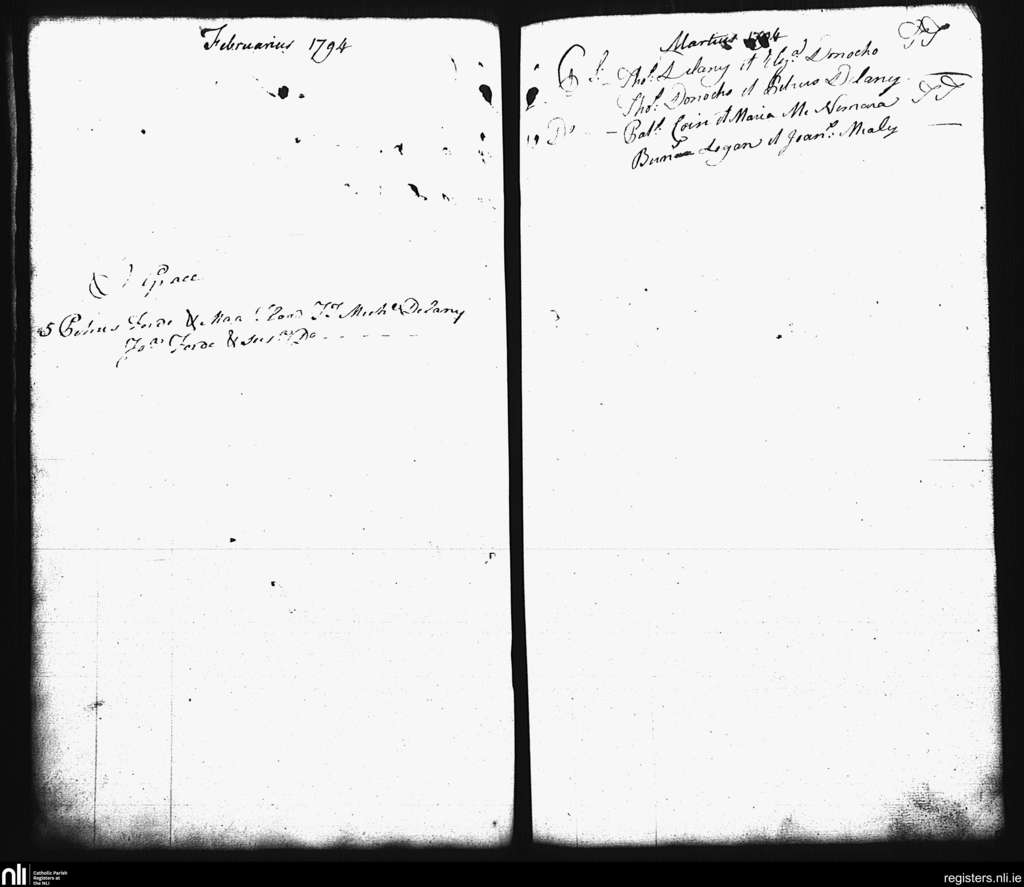 Februarius 1794
Grace
5 Petrus Forde & Maa TT Michl Delany
Forde & Do
Martius 1794
Thos Delany et Elizth Donocho TT
Thos Donocho et Petrus Delany
Do Patk Coin et Maria Mc Nemara TT
Logan et Joans Mealy
nli
Catholic Parish
Registers at
the NLI
registers.nli.ie